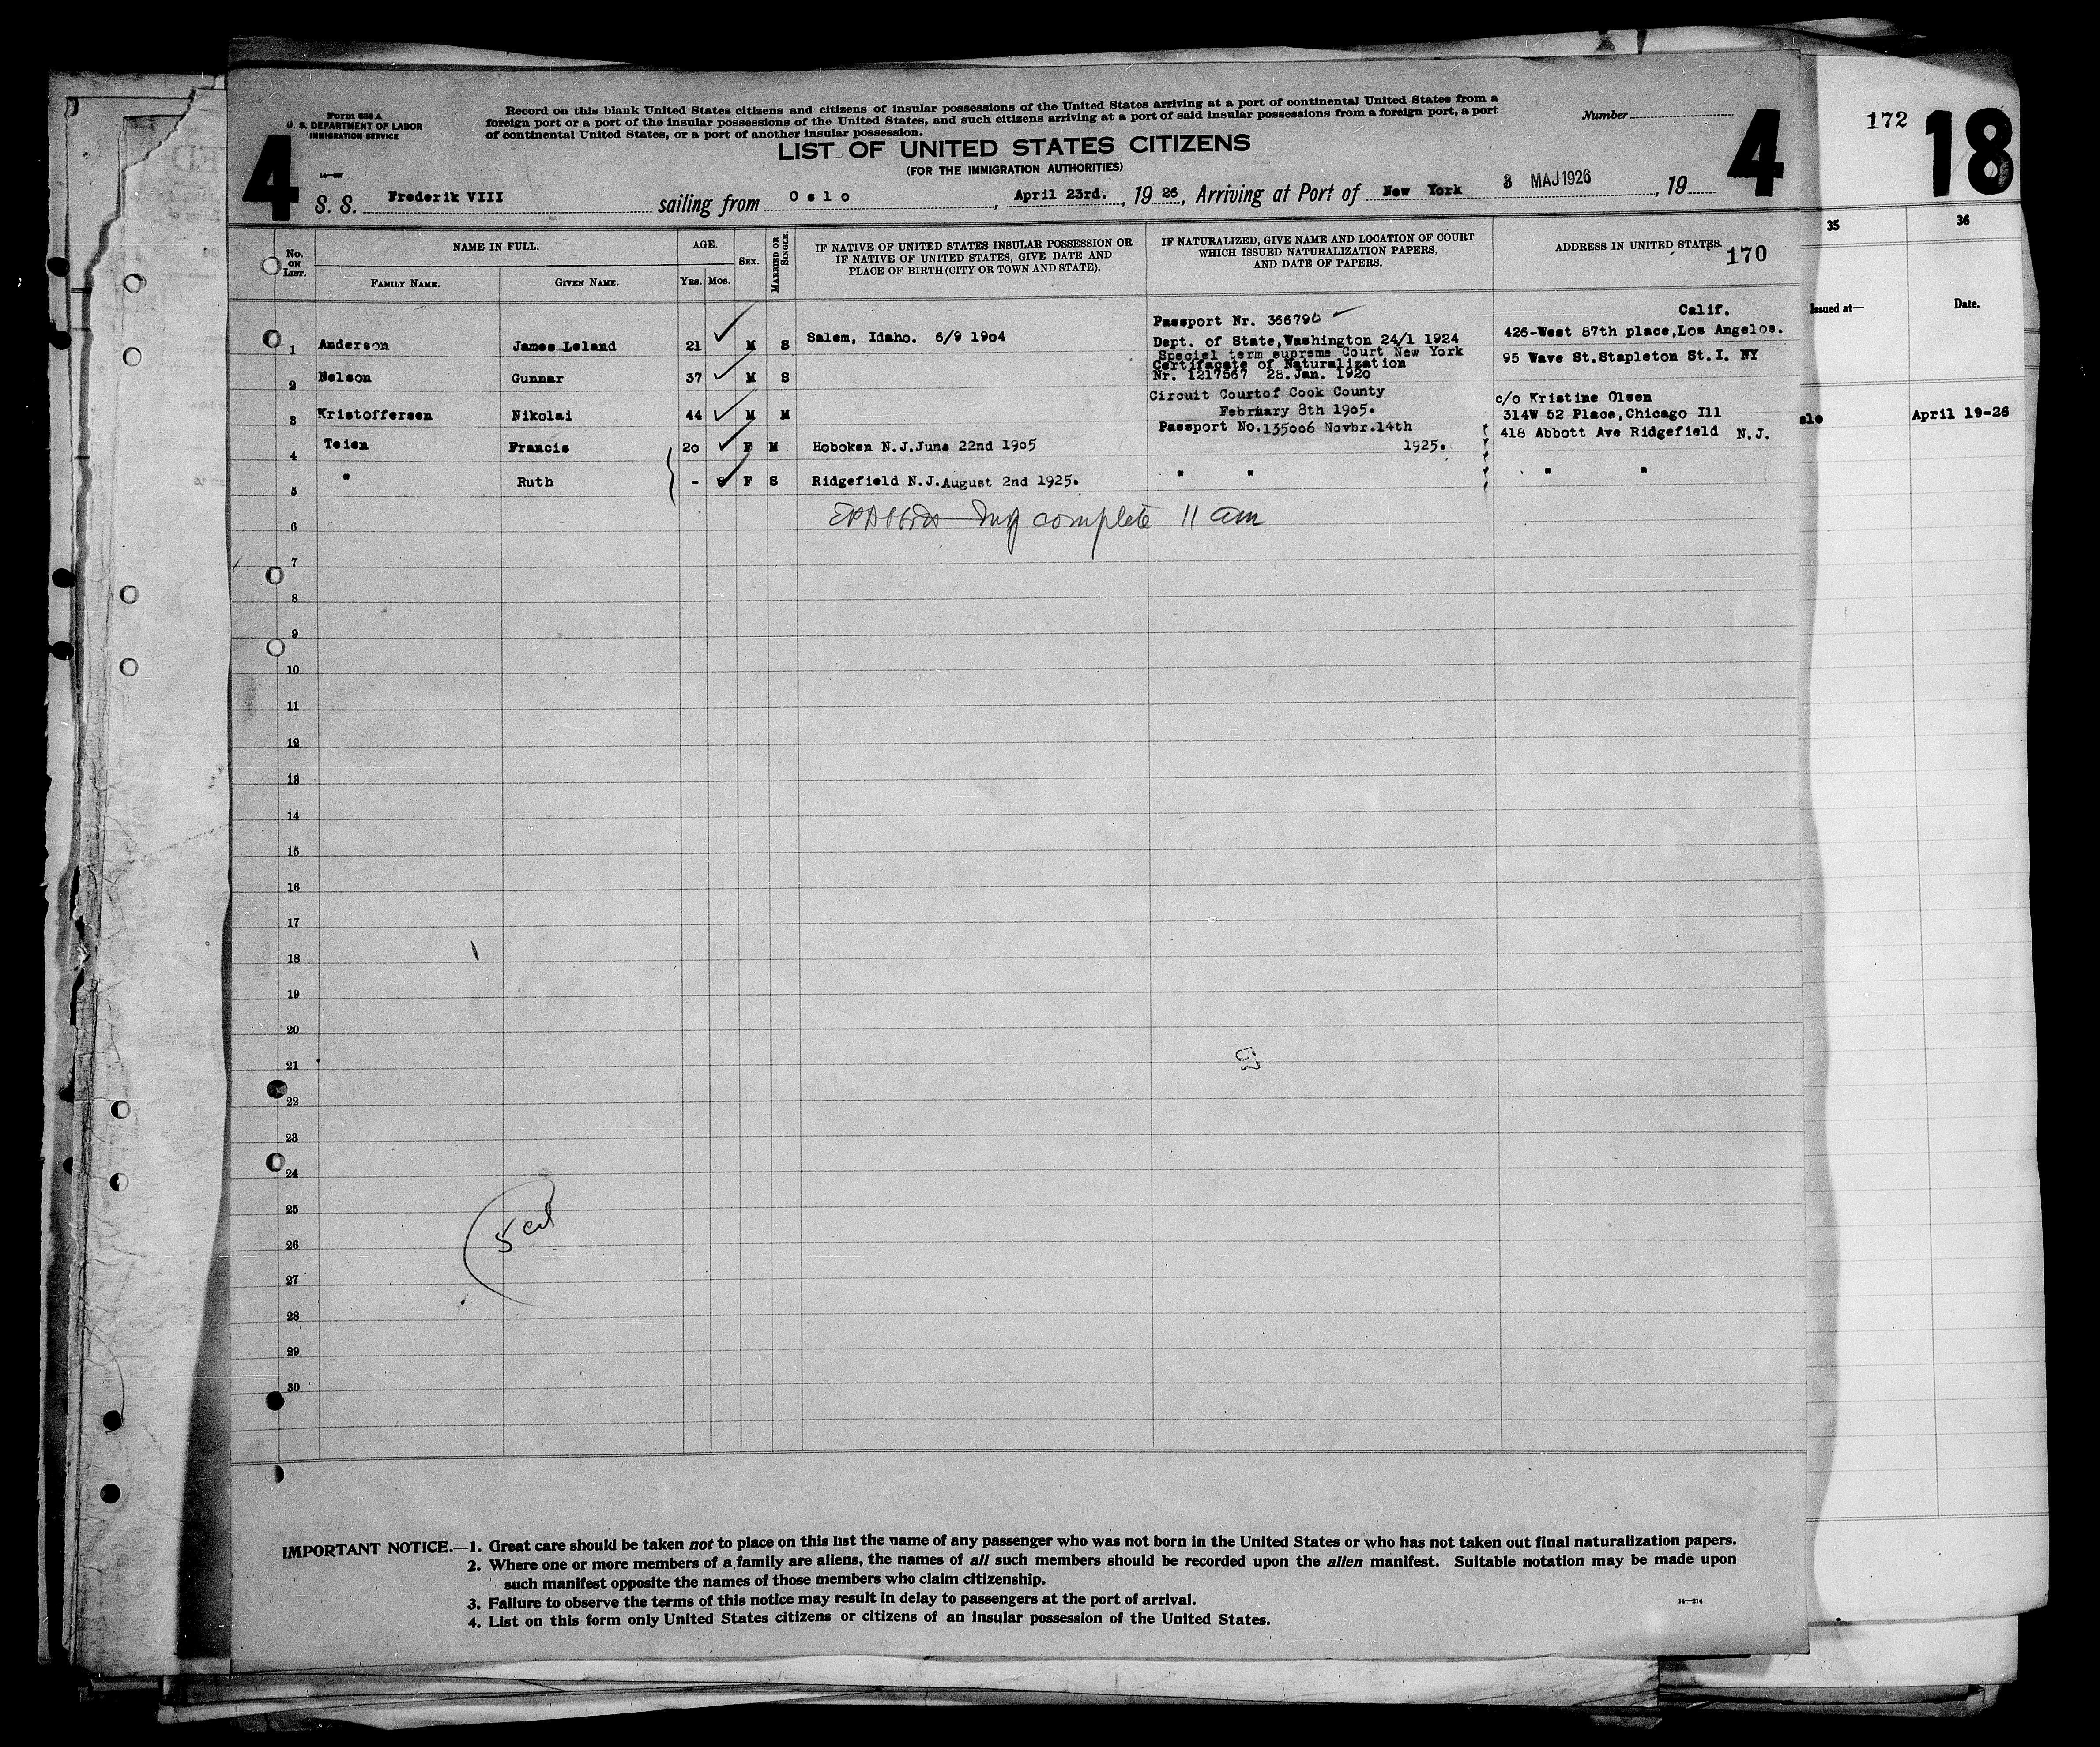 Form 630 A
U. S. DEPARTMENT OF LABOR
IMMIGRATION SERVICE
Record on this blank United States citizens and citizens of insular possessions of the United States arriving at a port of continental United States from a
foreign port or a port of the insular possessions of the United States, and such citizens arriving at a port of said insular possessions from a foreign port, a port
of continental United States, or a port of another insular possession.
Number
4
4
172 18
LIST OF UNITED STATES CITIZENS
(FOR THE IMMIGRATION AUTHORITIES)
S. S. Frederik VIII sailing from Oslo, April 23rd., 19 26, Arriving at Port of New York 3 MAJ 1926, 19
No. ON LIST.
NAME IN FULL.
FAMILY NAME. GIVEN NAME.
AGE.
YRS. MOS.
SEX.
MARRIED OR SINGLE.
IF NATIVE OF UNITED STATES INSULAR POSSESSION OR
IF NATIVE OF UNITED STATES, GIVE DATE AND
PLACE OF BIRTH (CITY OR TOWN AND STATE).
IF NATURALIZED, GIVE NAME AND LOCATION OF COURT
WHICH ISSUED NATURALIZATION PAPERS,
AND DATE OF PAPERS.
ADDRESS IN UNITED STATES.
170
35 36
Issued at— Date.
1 Anderson James Leland 21 M S Salem, Idaho. 6/9 1904
Passport Nr. 366790
Dept. of State,Washington 24/1 1924
Calif.
426-West 87th place,Los Angelos.
2 Nelson Gunnar 37 M S
Special term supreme Court New York
Certifacate of Naturalization
Nr. 1217567 28.Jan. 1920
95 Wave St.Stapleton St.I. NY
3 Kristoffersen Nikolai 44 M M
Circuit Courtof Cook County
February 8th 1905.
c/o Kristine Olsen
314W 52 Place,Chicago Ill
slo April 19-26
4 Teien Francis 20 F M Hoboken N.J.June 22nd 1905
Passport No.135006 Novbr.14th
1925.
418 Abbott Ave Ridgefield N.J.
5 " Ruth - F S Ridgefield N.J.August 2nd 1925. " " " "
6 complete 11 am
7
8
9
10
11
12
13
14
15
16
17
18
19
20
21
22
23
24
25
26
27
28
29
30
5
IMPORTANT NOTICE.—1. Great care should be taken not to place on this list the name of any passenger who was not born in the United States or who has not taken out final naturalization papers.
2. Where one or more members of a family are aliens, the names of all such members should be recorded upon the alien manifest. Suitable notation may be made upon
such manifest opposite the names of those members who claim citizenship.
3. Failure to observe the terms of this notice may result in delay to passengers at the port of arrival.
4. List on this form only United States citizens or citizens of an insular possession of the United States.
14—214